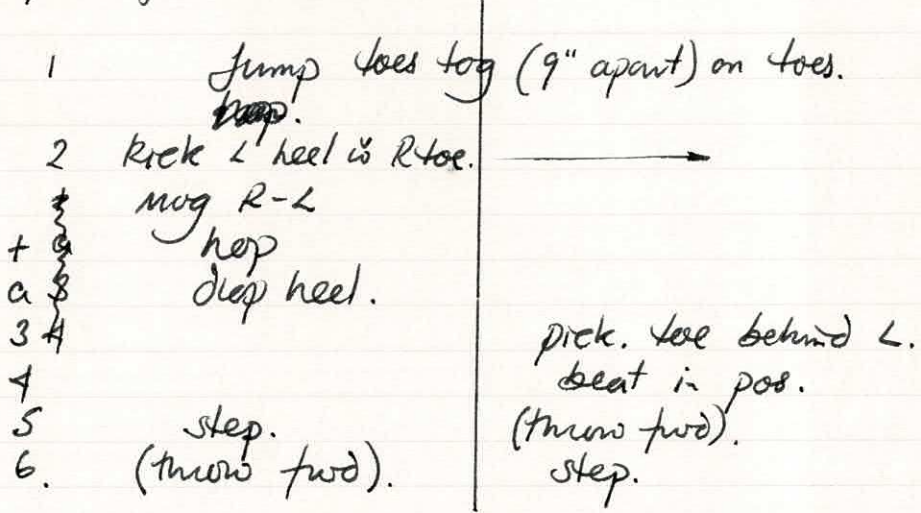 1 Jump toes tog (9" apart) on toes.
2 kick L heel w R toe.
mvg R-L
+ hop
a drop heel.
3 pick. toe behind L.
4 beat in pos.
5 step. (throw fwd).
6. (throw fwd). step.